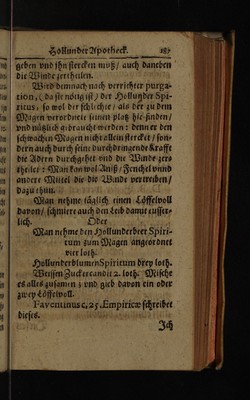 Hollunder Apotheck. 187
geben vnd ihn stercken muß / auch daneben
die Winde zertheilen.
Wird demnach nach verrichter purga-
tion, (da sie nötig ist) der Hollunder Spi-
ritus / so wol der schlechte / als der zu dem
Magen verordnete seinen platz hie finden /
vnd nützlich gebraucht werden: denn er den
schwachen Magen nicht allein stercket / son-
dern auch durch seine durchdringende Krafft
die Adern durchgehet vnd die Winde zer-
theilet: Man kan wol Aniß / Fenchel vnnd
andere Mittel die die Winde vertreiben /
dazu thun.
Man nehme täglich einen Löffelvoll
davon / schmiere auch den Leib damit eusser-
lich. Oder
Man nehme den Hollunderbeer Spiri-
tum zum Magen angeordnet
vier loth.
Hollunderblumen Spiritum drey loth.
Weissen Zuckercandit 2. loth. Mische
es alles zusamen / vnd gieb davon ein oder
zwey Löffelvoll.
Faventinus c. 25. Empiricæ schreibet
dieses.
Ich